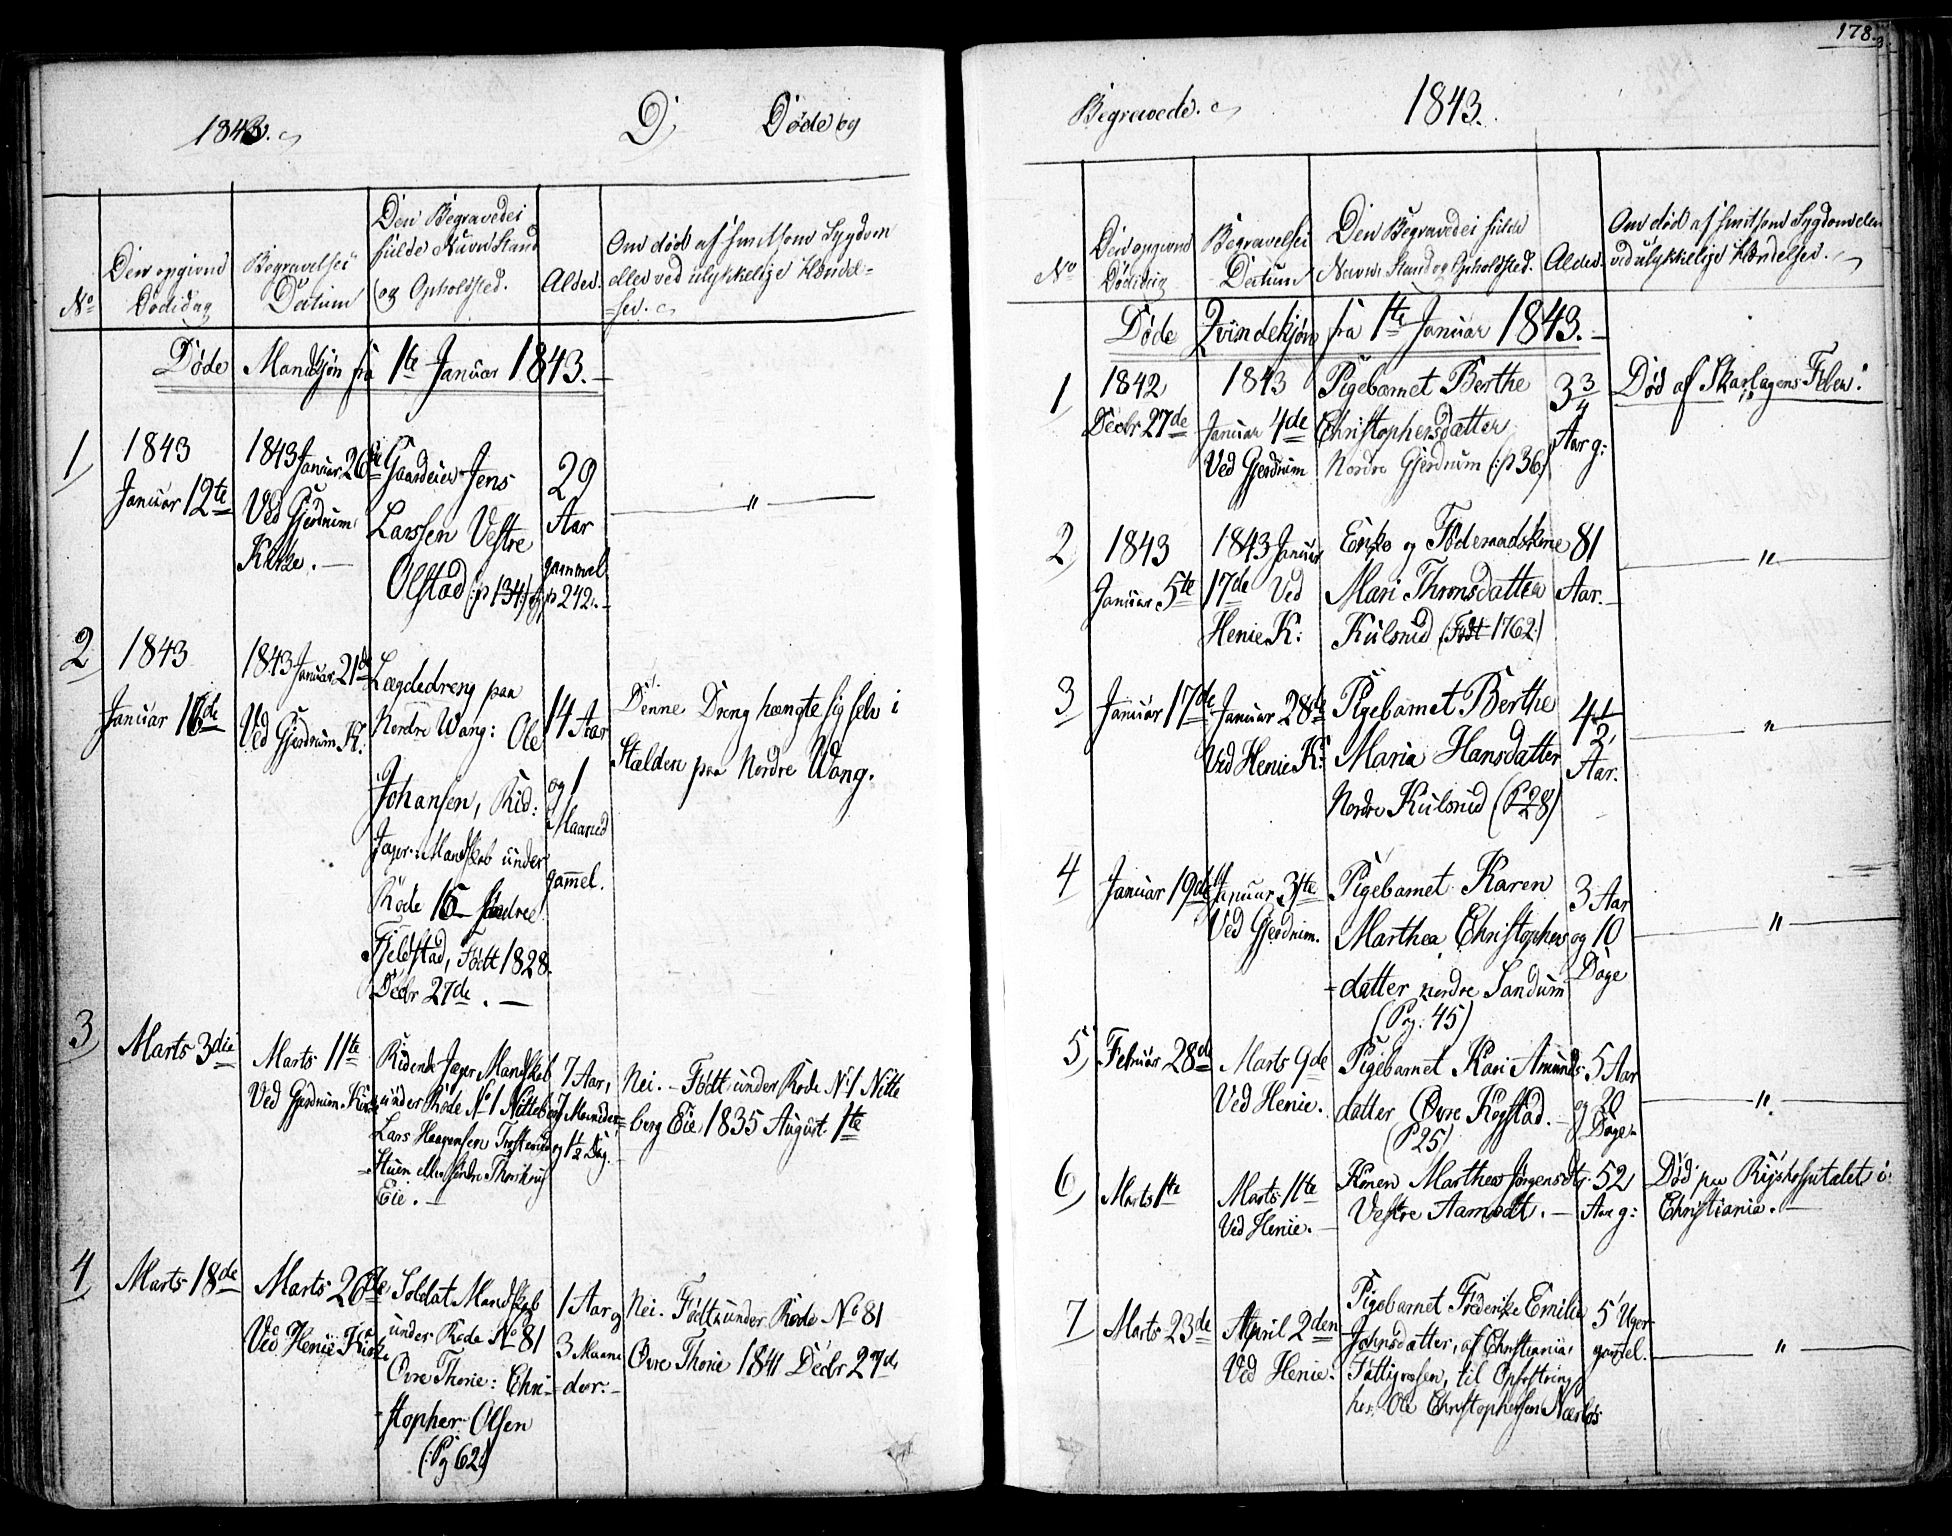 178.
1843.
D,
Døde og
No
Den opgivne Dødsdag
Begravelses Datum
Den Begravedes
fulde Navn Stand
og Opholdsted.
Alder.
Om død af smitsom Sygdom
eller ved ulykkelige Hændel=
=ser.
Døde Mandkjøn fra 1te Januar 1843.
1
1843
Januar 12te
1843 Januar 26de
Ved Gjerdrum
Kirke.
Gaardeier Jens
Larssen Vestre
Olstad (:p 134:) og p 242.
29
Aar
gammel
"
2
1843
Januar 16de
1843 Januar 21de
Ved Gjerdrum K:
Lægdedreng paa
Nordre Wang: Ole
Johansen, Rid:
Jæger-Mandskab under
Rode 15 søndre
Fjeldstad, Født 1828.
Decbr 27de.
14 Aar
og 1
Maaned
gammel.
Denne Dreng hængte sig selv i
Stalden paa Nordre Wang.
3
Marts 3die
Marts 11te
Ved Gjerdrum Kirke
Ridende Jæger Mandskab
under Rode No 1 Nitteberg
Lars Haagensen
Eie.
7 Aar,
7 Maaneder
og 1½ Dag.
Nei. - Født under Rode No 1 Nitte
=berg Eie 1835 August 1te
4
Marts 18de
Marts 26de
Ved Henie Kirke
Soldat Mandskab
under Rode No 81
Øvre Thorie: Chri=
=stopher Olsen
(:Pg 62:)
1 Aar og
3 Maane
=der.
Nei. Født under Rode No 81
Øvre Thorie 1841 Decbr 27de
Begravede.
1843.
No
Den opgivne
Dødsdag
Begravelses
Datum
Den Begravedes fulde
Navn, Stand og Opholdsted.
Alder.
Om død af smitsom Sygdom eller
ved ulykkelige Hændelser.
Døde Qvindekjøn fra 1te Januar 1843.
1
1842
Decbr 27de
1843
Januar 4de
Ved Gjerdrum
Pigebarnet Berthe
Christophersdatter
Nordre Gjerdrum (:p 36)
3 3/4
Aar g:
Død af Skarlagens Feber.
2
1843
Januar 5te
1843 Januar
17de Ved
Henie K:
Enke og Føderaadskone
Mari Thronsdatter
Kulsrud (Født 1762:)
81
Aar.
"
3
Januar 17de
Januar 28de
Ved Henie K:
Pigebarnet Berthe
Maria Hansdatter
Nordre Kulsrud (P 28)
4 1/2
Aar.
"
4
Januar 19de
Januar 31te
Ved Gjerdrum.
Pigebarnet Karen
Marthea Christophers
=datter nordre Sandum
(Pg. 45)
3 Aar
og 10
Dage
"
5
Februar 28de
Marts 9de
Ved Henie.
Pigebarnet Kari Amunds
datter Øvre Kogstad.
(P 25)
5 Aar
og 20
Dage
"
6
Marts 1te
Marts 11te
Ved Henie.
Konen Marthea Jørgensdtr.
Vestre Aamodt.
52
Aar g:
Død paa Rigshospitalet i
Christiania.
7
Marts 23de
April 2den
Ved Henie.
Pigebarnet Frederike Emilie
Johnsdatter, af Christiania
Fattigvæsen, til Opfostring
hos Ole Christophersen
5 Uger
gammel.
"